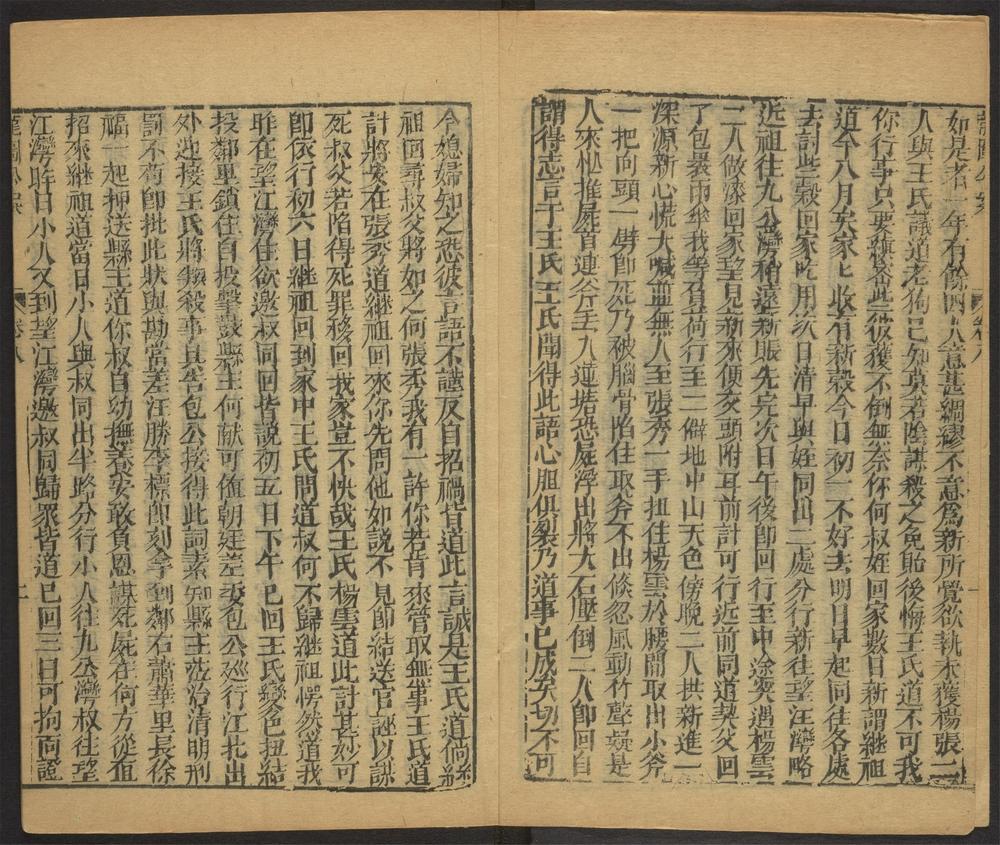 如是者一年有餘四人意甚綢繆不意為新所覺欲執未獲楊張二
人與王氏議道老狗已知莫若陰謀殺之免貽後悔王氏道不可我
你行事只要謹密些彼獲不倒無奈你何叔姪回家數日新謂繼祖
道今八月矣家家收有新穀今日初一不好去明日早起同往各處
去討些穀回家吃用次日清早與姪同出二處分行新往望江灣略
近祖往九公灣稍遠新賬先完次日午後即回行至中途突遇楊雲
二人做漆回家望見新來便交頭附耳前計可行近前同道契父回
了包裹雨傘我等負荷行至一僻地中山天色傍晚二人拱新進一
深源新心慌大喊並無人至張秀一手扭住楊雲於腰間取出小斧
一把向頭一劈即死乃被腦骨陷住取斧不出倏忽風動竹聲疑是
人來忙推屍首連斧丟入蓮塘恐屍浮出將大石壓倒二人即回自
謂得志言于王氏王氏聞得此語心胆俱裂乃道事已成矣切不可
令媳婦知之恐彼言語不謹反自招禍皆道此言誠是王氏道倘繼
祖回尋叔父將如之何張秀我有一計你若肯來管取無事王氏道
計將安在張秀道繼祖回來你先問他如說不見即結送官誣以謀
死叔父若陷得死罪移回我家豈不快哉王氏楊雲道此計甚妙可
即依行初六日繼祖回到家中王氏問道叔何不歸繼祖愕然道我
昨在望江灣住欲邀叔同回皆說初五日下午已回王氏變色扭結
投鄰里鎖住自投擊鼓縣主何献可值朝廷差委包公巡行江北出
外迎接王氏將類殺事具告包公接得此詞素知縣主蒞治清明刑
罰不苟即批此狀與勘當差汪勝李標即刻拿到鄰右蕭華里長徐
福一起押送縣主道你叔自幼撫養安敢負恩謀死屍在何方從直
招來繼祖道當日小人與叔同出半路分行小人往九公灣叔往望
江灣昨日小人又到望江灣邀叔同歸眾皆道已回三日可拘面證
卷八